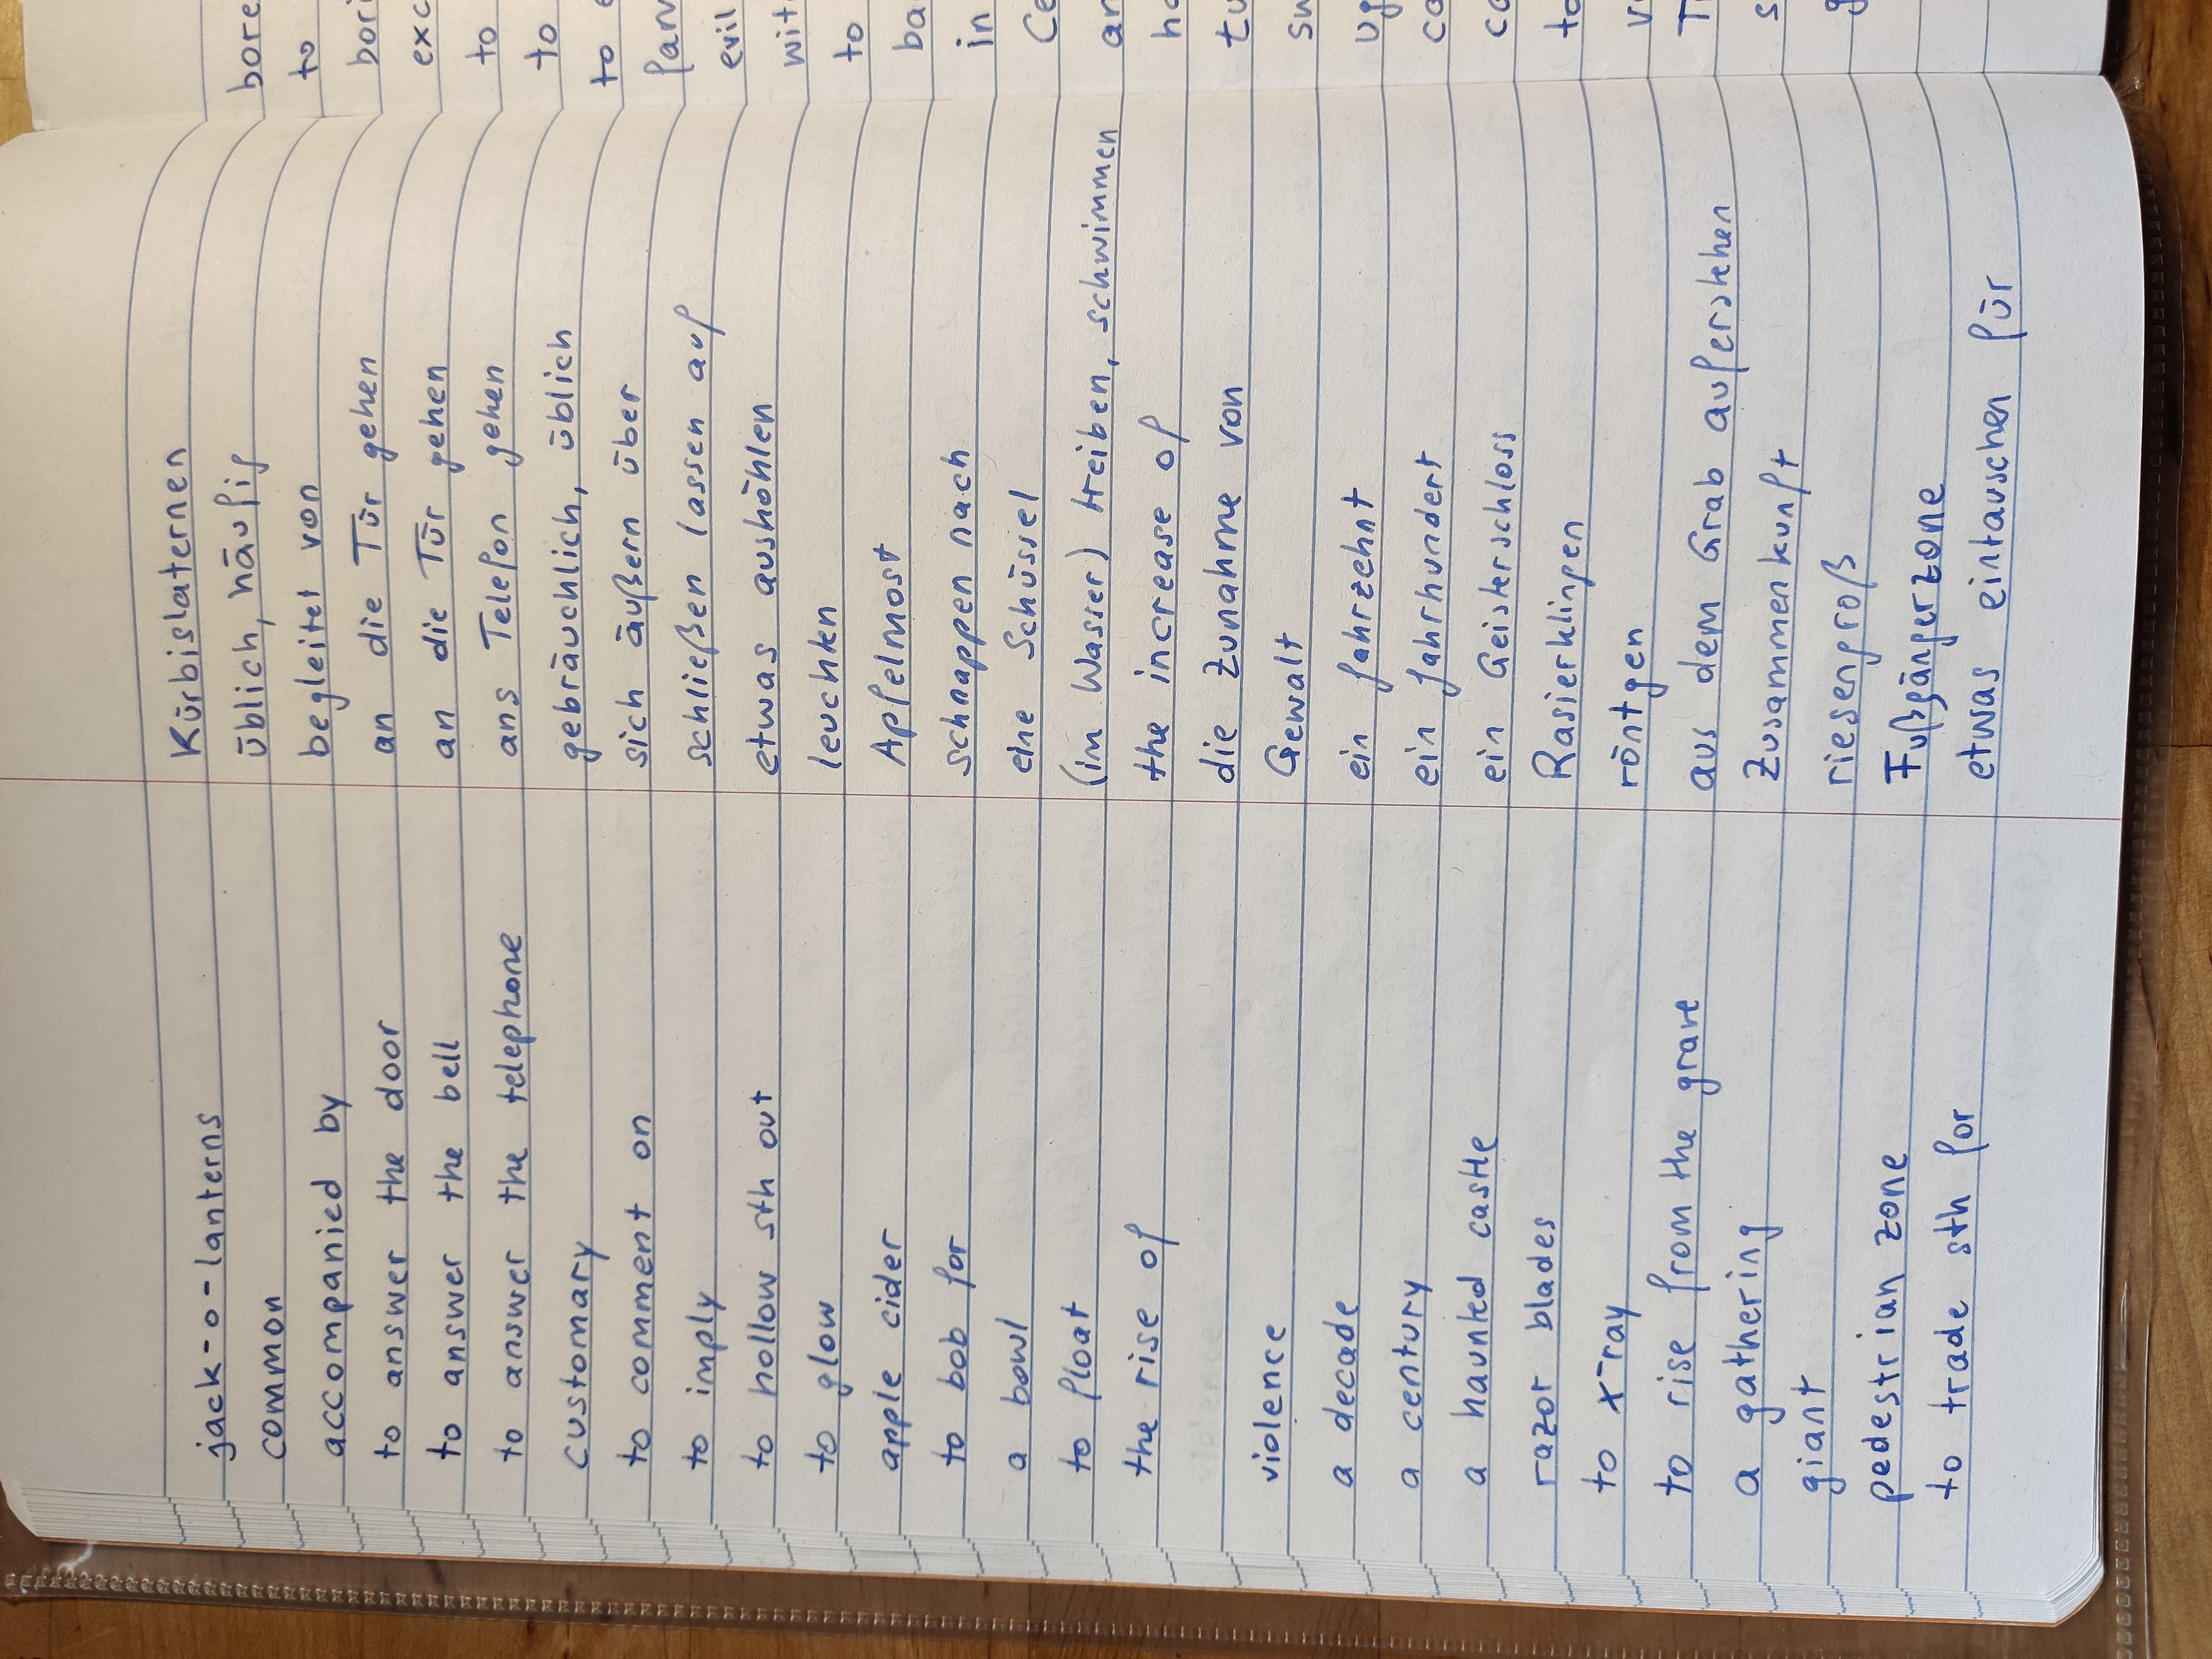 jack-o-lanterns Kürbislaternen
common üblich, häufig
accompanied by begleitet von
to answer the door an die Tür gehen
to answer the bell an die Tür gehen
to answer the telephone ans Telefon gehen
customary gebräuchlich, üblich
to comment on sich äußern über
to imply schließen lassen auf
to hollow sth out etwas aushöhlen
to glow leuchten
apple cider Apfelmost
to bob for schnappen nach
a bowl eine Schüssel
to float (im Wasser) treiben, schwimmen
the rise of the increase of
die Zunahme von
violence Gewalt
a decade ein Jahrzehnt
a century ein Jahrhundert
a haunted castle ein Geisterschloss
razor blades Rasierklingen
to x-ray röntgen
to rise from the grave aus dem Grab auferstehen
a gathering Zusammenkunft
giant riesengroß
pedestrian zone Fußgängerzone
to trade sth for etwas eintauschen für
bore
to
bori
exc
to
to
to e
evil
wit
to
ba
in